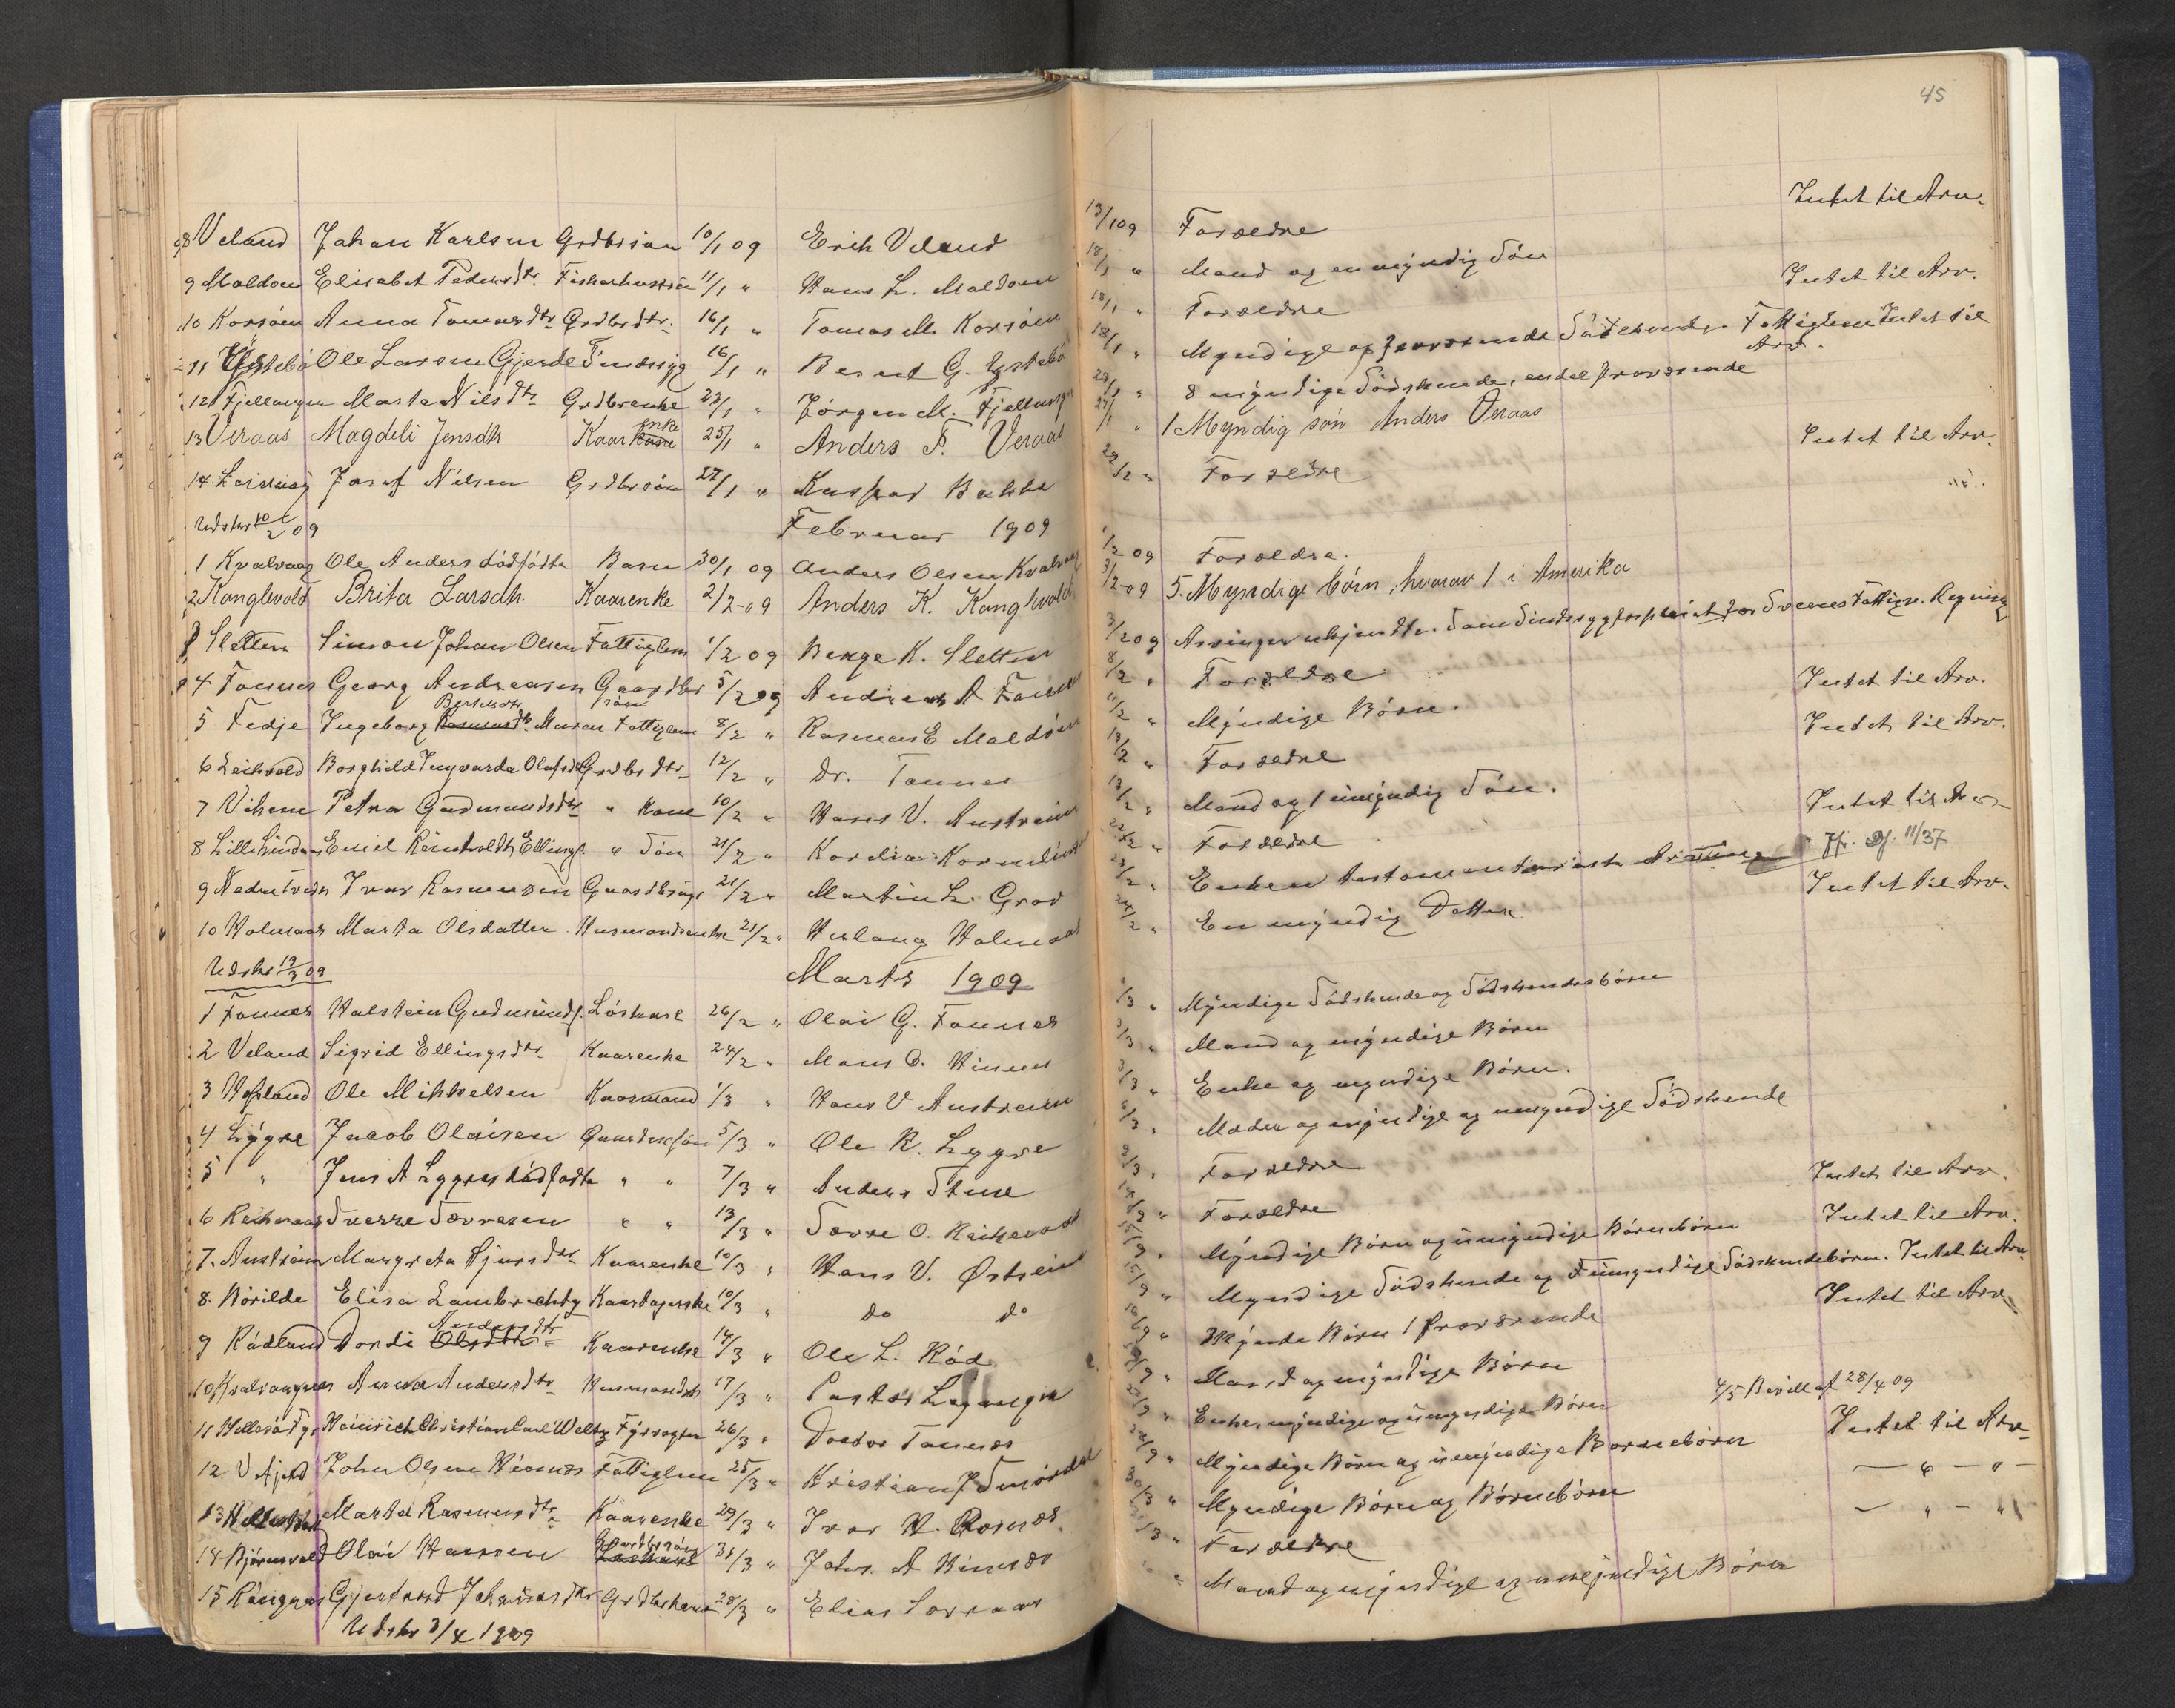 45
8 Veland Johan Karlsen Grdbrsøn 10/1 09 Erik Veland 13/1 09 Forældre Intet til Arv.
9 Maldøen Elisabet Pedersdtr. 11/1 " Hans L. Maldøen 18/1 " Mand og en myndig Søn
10 Korsøen Anna Tomasdtr Grdbrdtr. 16/1 " Tomas M. Korsøen 18/1 " Forældre Intet til Arv.
11 Ystebø Ole Larsen Gjerde Sindssyg 16/1 " Bernt G. Ystebø 18/1 " Myndige og fraværende Sødskende. Fattiglem Intet til Arv.
12 Fjellangen Marta Nilsdtr Grdbrenke 23/1 " Jørgen M. Fjellangen 8 myndige Sødskende, endel fraværende
13 Veraas Magdeli Jensdtr Kaarenke 25/1 " Anders F. Veraas 27/1 " 1 Myndig søn Anders Veraas
14 Leirvaag Josef Nilsen Grdbrsøn 27/1 " Kaspar Bakke 22/2 " Forældre Intet til Arv.
Udskr 10/2 09 Februar 1909
1 Kvalvaag Ole Anders dødfødte Barn 30/1 09 Anders Olsen Kvalvaag 1/2 09 Forældre.
2 Kanglevold Brita Larsdtr. Kaarenke 2/2-09 Anders K. Kanglevold 3/2-09 5. Myndige børn, hvorav 1 i Amerika
3 Sletten Simon Johan Olsen Fattiglem 1/2 09 Benge K. Sletten 3/2 09 Arvinger ukjendte. Sindssygforpleiet for Fattigv. Regning
4 Fonnes Georg Andreasen Gaardbrsøn 5/2 09 Andreas A Fonnes 8/2 " Forældre Intet til Arv.
5 Fedje Ingeborg Bertesdtr Muren Fattiglem 8/2 " Rasmus E Maldøen 11/2 " Myndige Børn. Intet til Arv.
6 Leikvold Borghild Ingvarda Olafsdtr Grdbrdtr 12/2 " Dr. Tannes 13/2 " Forældre
7 Vihenne Petra Gudmundsdtr " Kone 10/2 " Hans V. Austreim 13/2 " Mand og 1 umyndig Søn. Intet til Arv
8 Lille Lindaas Emil Reinholdt Ellings. " Søn 21/2 " Kordia Kornelius 22/2 " Forældre Jfr. 11/37
9 Nedre Ivar Rasmussen 21/2 " Martin L. Grov 23/2 " Enken Intet til Arv.
10 Holmaas Marta Olsdatter Husmandsenke 21/2 " Herlaug Holmaas 24/2 " En myndig Datter
Udskr 19/3 09 Marts 1909
1 Fonnes Halstein Gudmunds. Løskarl 26/2 " Olai G. Fonnes Myndige Sødskende og Sødskendesbørn
2 Veland Sigrid Ellingsdtr Kaarenke 24/2 " Mons O. Hinnes 3/3 " Mand og myndige Børn
3 Hopland Ole Mikkelsen Kaarmand 1/3 " Hans V Austreim 3/3 " Enke og myndige Børn.
4 Lygre Jacob Olaisen 5/3 " Ole R. Lygre 6/3 " Moder og myndige og umyndige Sødskende
5 " Jens A Lygres dødfødte " " 7/3 " Anders Stene 9/3 " Forældre Intet til Arv.
6 Reikeraas Sverre Sævresen " " 13/3 " Sævre O. Reikeraas 14/3 " Forældre Intet til Arv.
7. Austreim Margreta Hjersdtr Kaarenke 10/3 " Hans V. Østreim 15/3 " Myndige Børn og umyndige Børnebørn
8. Børilde Elisa Lambrechts 10/3 " do do 15/3 " Myndige Sødskende og umyndige Sødskendebørn. Intet til Arv
9 Rødland Dordi Andersdtr Kaarenke 14/3 " Ole L. Rød 16/3 " Børn 1 fraværende Intet til Arv
10 Anna Andersdtr 17/3 " Mand og myndige Børn
11 Hellesø Fyr Heinrich Christian Carl Fyrvogter 26/3 " Doctor Tannes Enke, myndige og umyndige Børn 4/5 Bevill. af 28/4 09
12 John Olsen Hinnes Fattiglem 25/3 " Kristian J Smørdal Myndige Børn og umyndige Børnebørn Intet til Arv
13 Marta Rasmusdtr Kaarenke 29/3 " Ivar H. Rosnes. 30/3 " Myndige Børn og Børnebørn — " — " —
14 Bjørnsvold Olai Hansen Gaardbrsøn 31/3 " Johs. A Hinnes 31/3 " Forældre — " — "
15 Gjertrud Johannesdtr 28/3 " Elias Sørraas " Mand og myndige og umyndige Børn
Udskr 3/4 1909